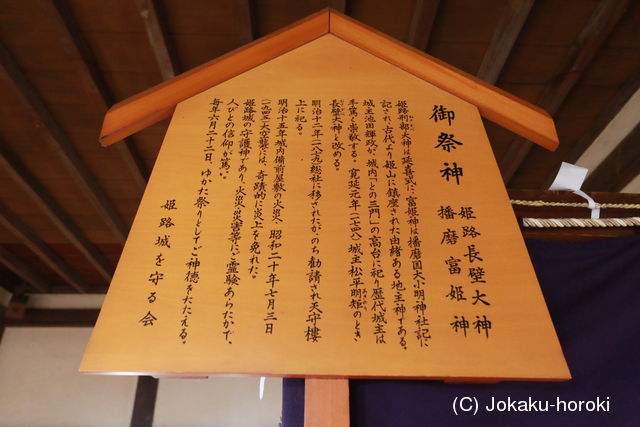 御祭神
姫路長壁大神
播磨富姫神
姫路刑部大神は延喜式に、富姫神は播磨国大小明神社記に
記され、古代より姫山に鎮座された由緒ある地主神である。
城主池田輝政が、城内「との三門」の高台に祀り歴代城主は
手篤く崇敬する。寛延元年（一七四八）城主松平明矩のとき
長壁大神と改める。
明治十二年（一八七九）総社に移されたが、のち勧請され天守楼
上に祀る。
明治十五年城内備前屋敷の火災、昭和二十年七月三日
（一九四五）大空襲には、奇蹟的に炎上を免れた。
姫路城の守護神であり、火災、災害等にご霊験あらたかで、
人びとの信仰が篤い。
毎年六月二十二日、ゆかた祭りとしてご神徳をたたえる。
姫路城を守る会
(C) Jokaku-horoki